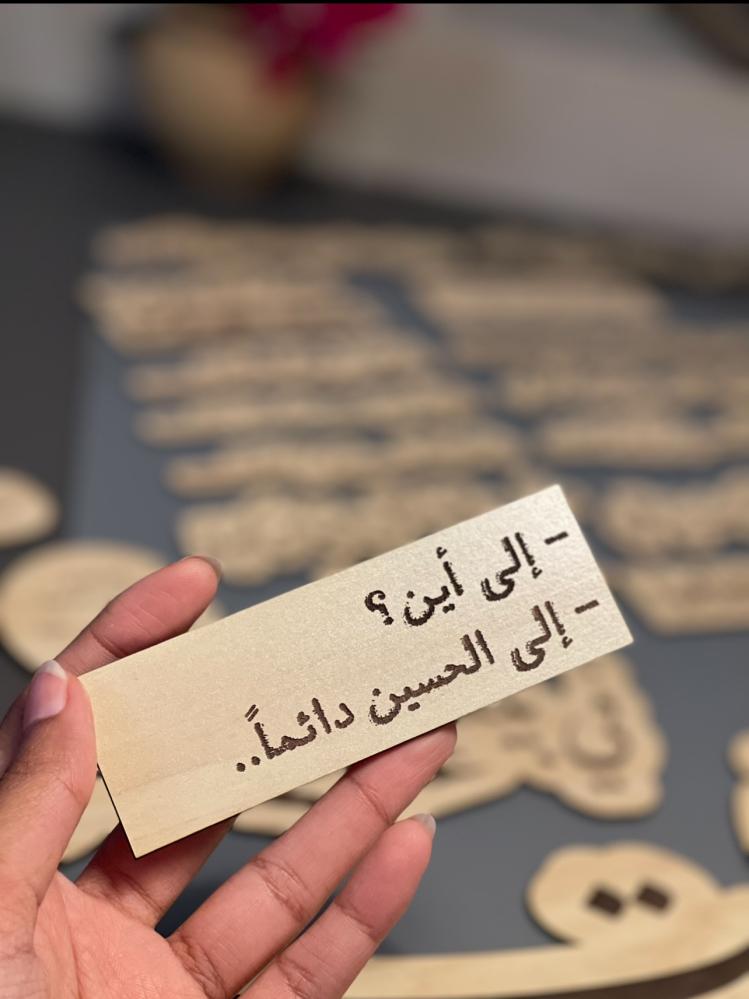 - إلى أين؟
- إلى الحسين دائماً..